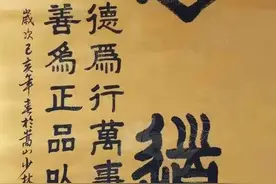 德爲行萬事
善為正品
歲次己亥年春於嵩山少林